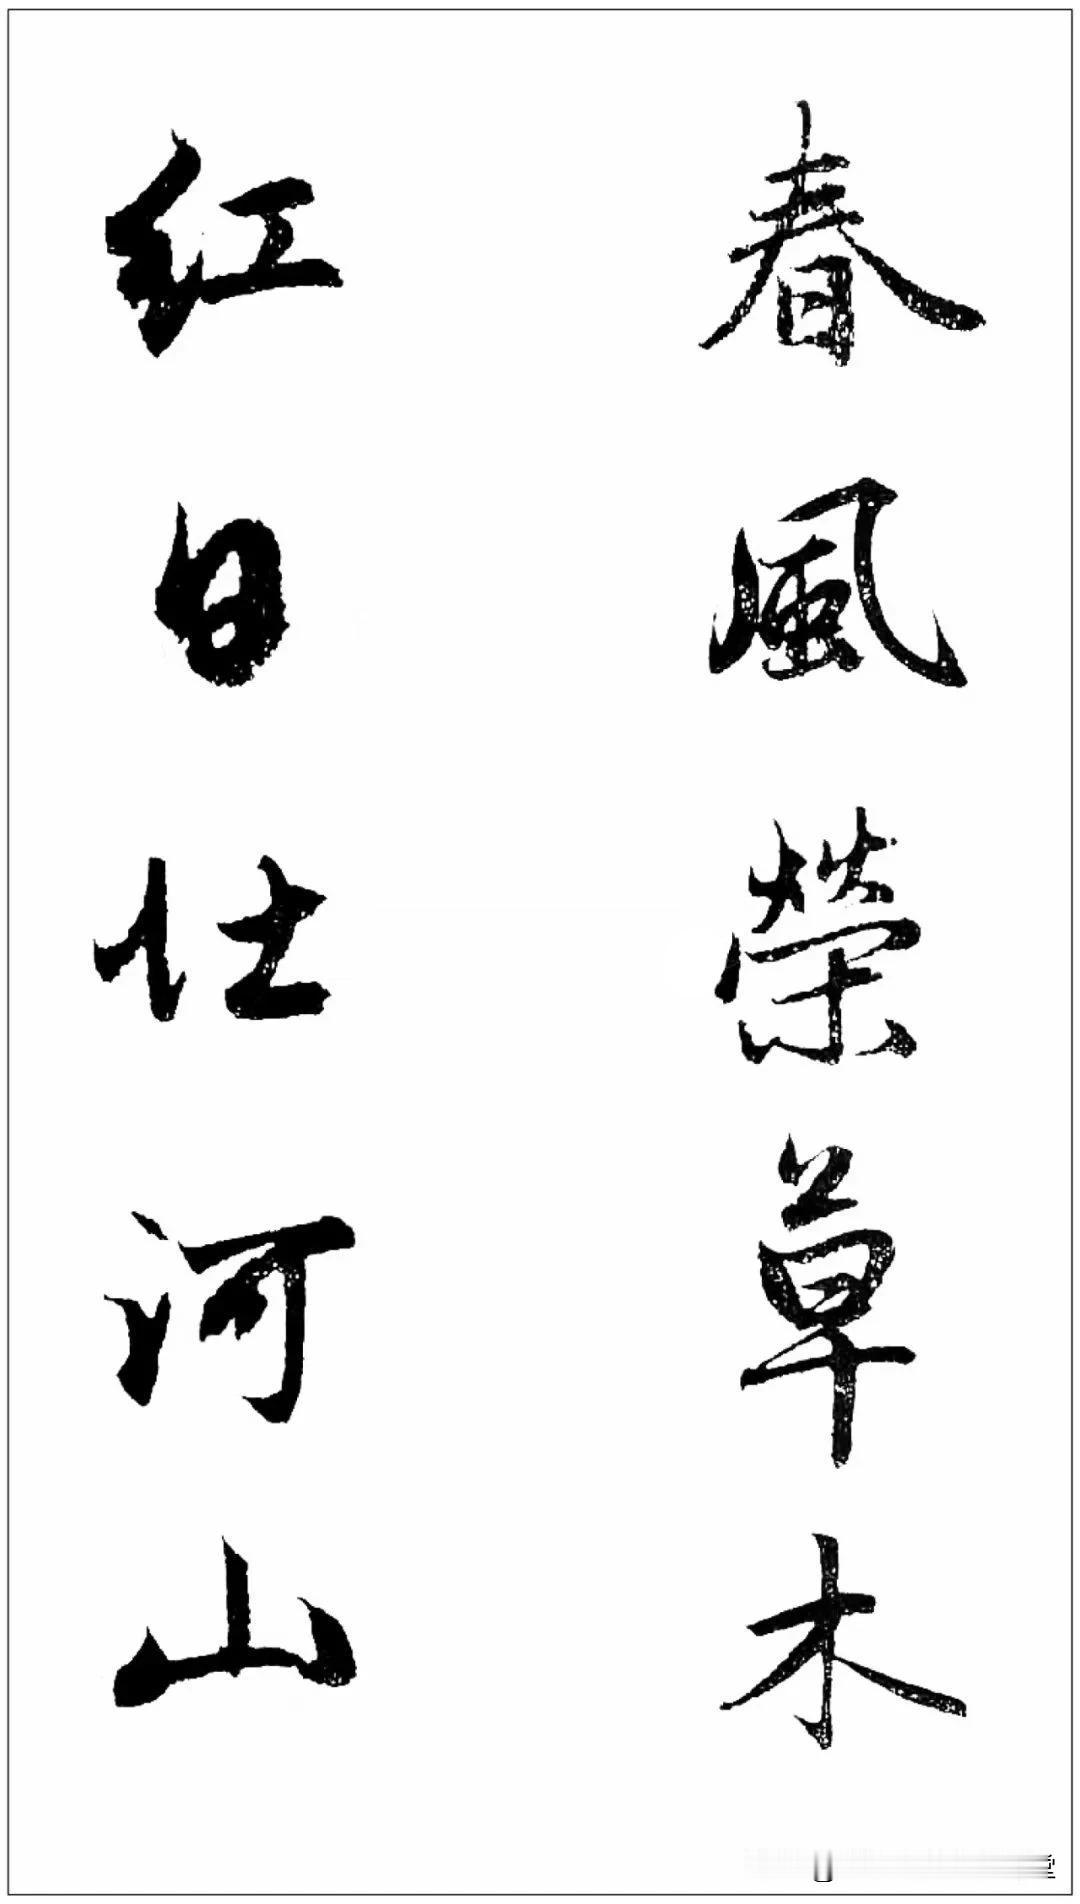 春風榮草木
红日仕河山